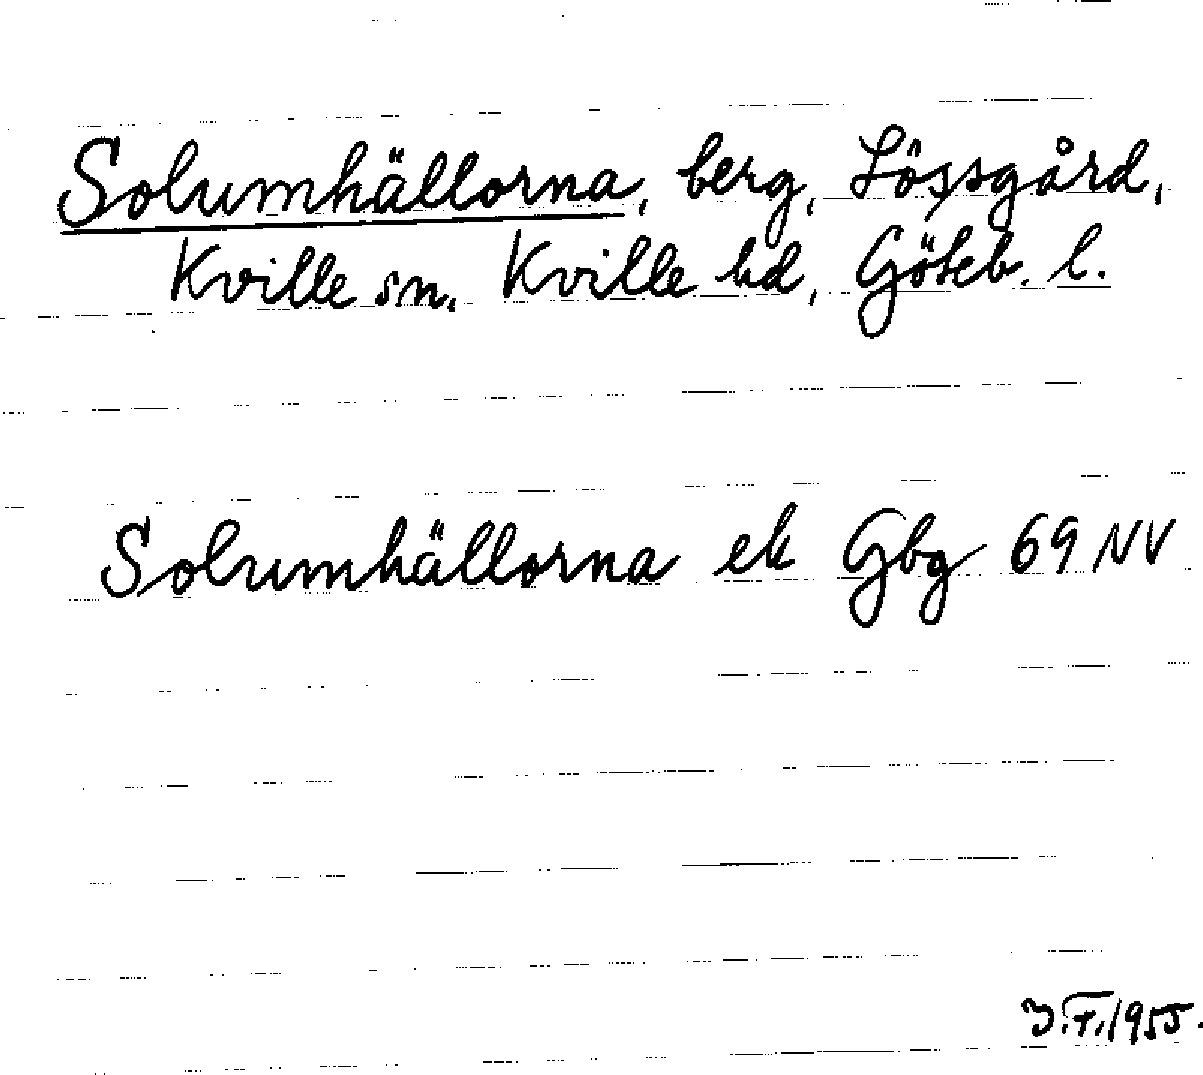 Solumhällorna, berg, Lössgård,
Kville sn, Kville hd, Göteb. l.
Solumhällorna ek Gbg 69 NV
1955.